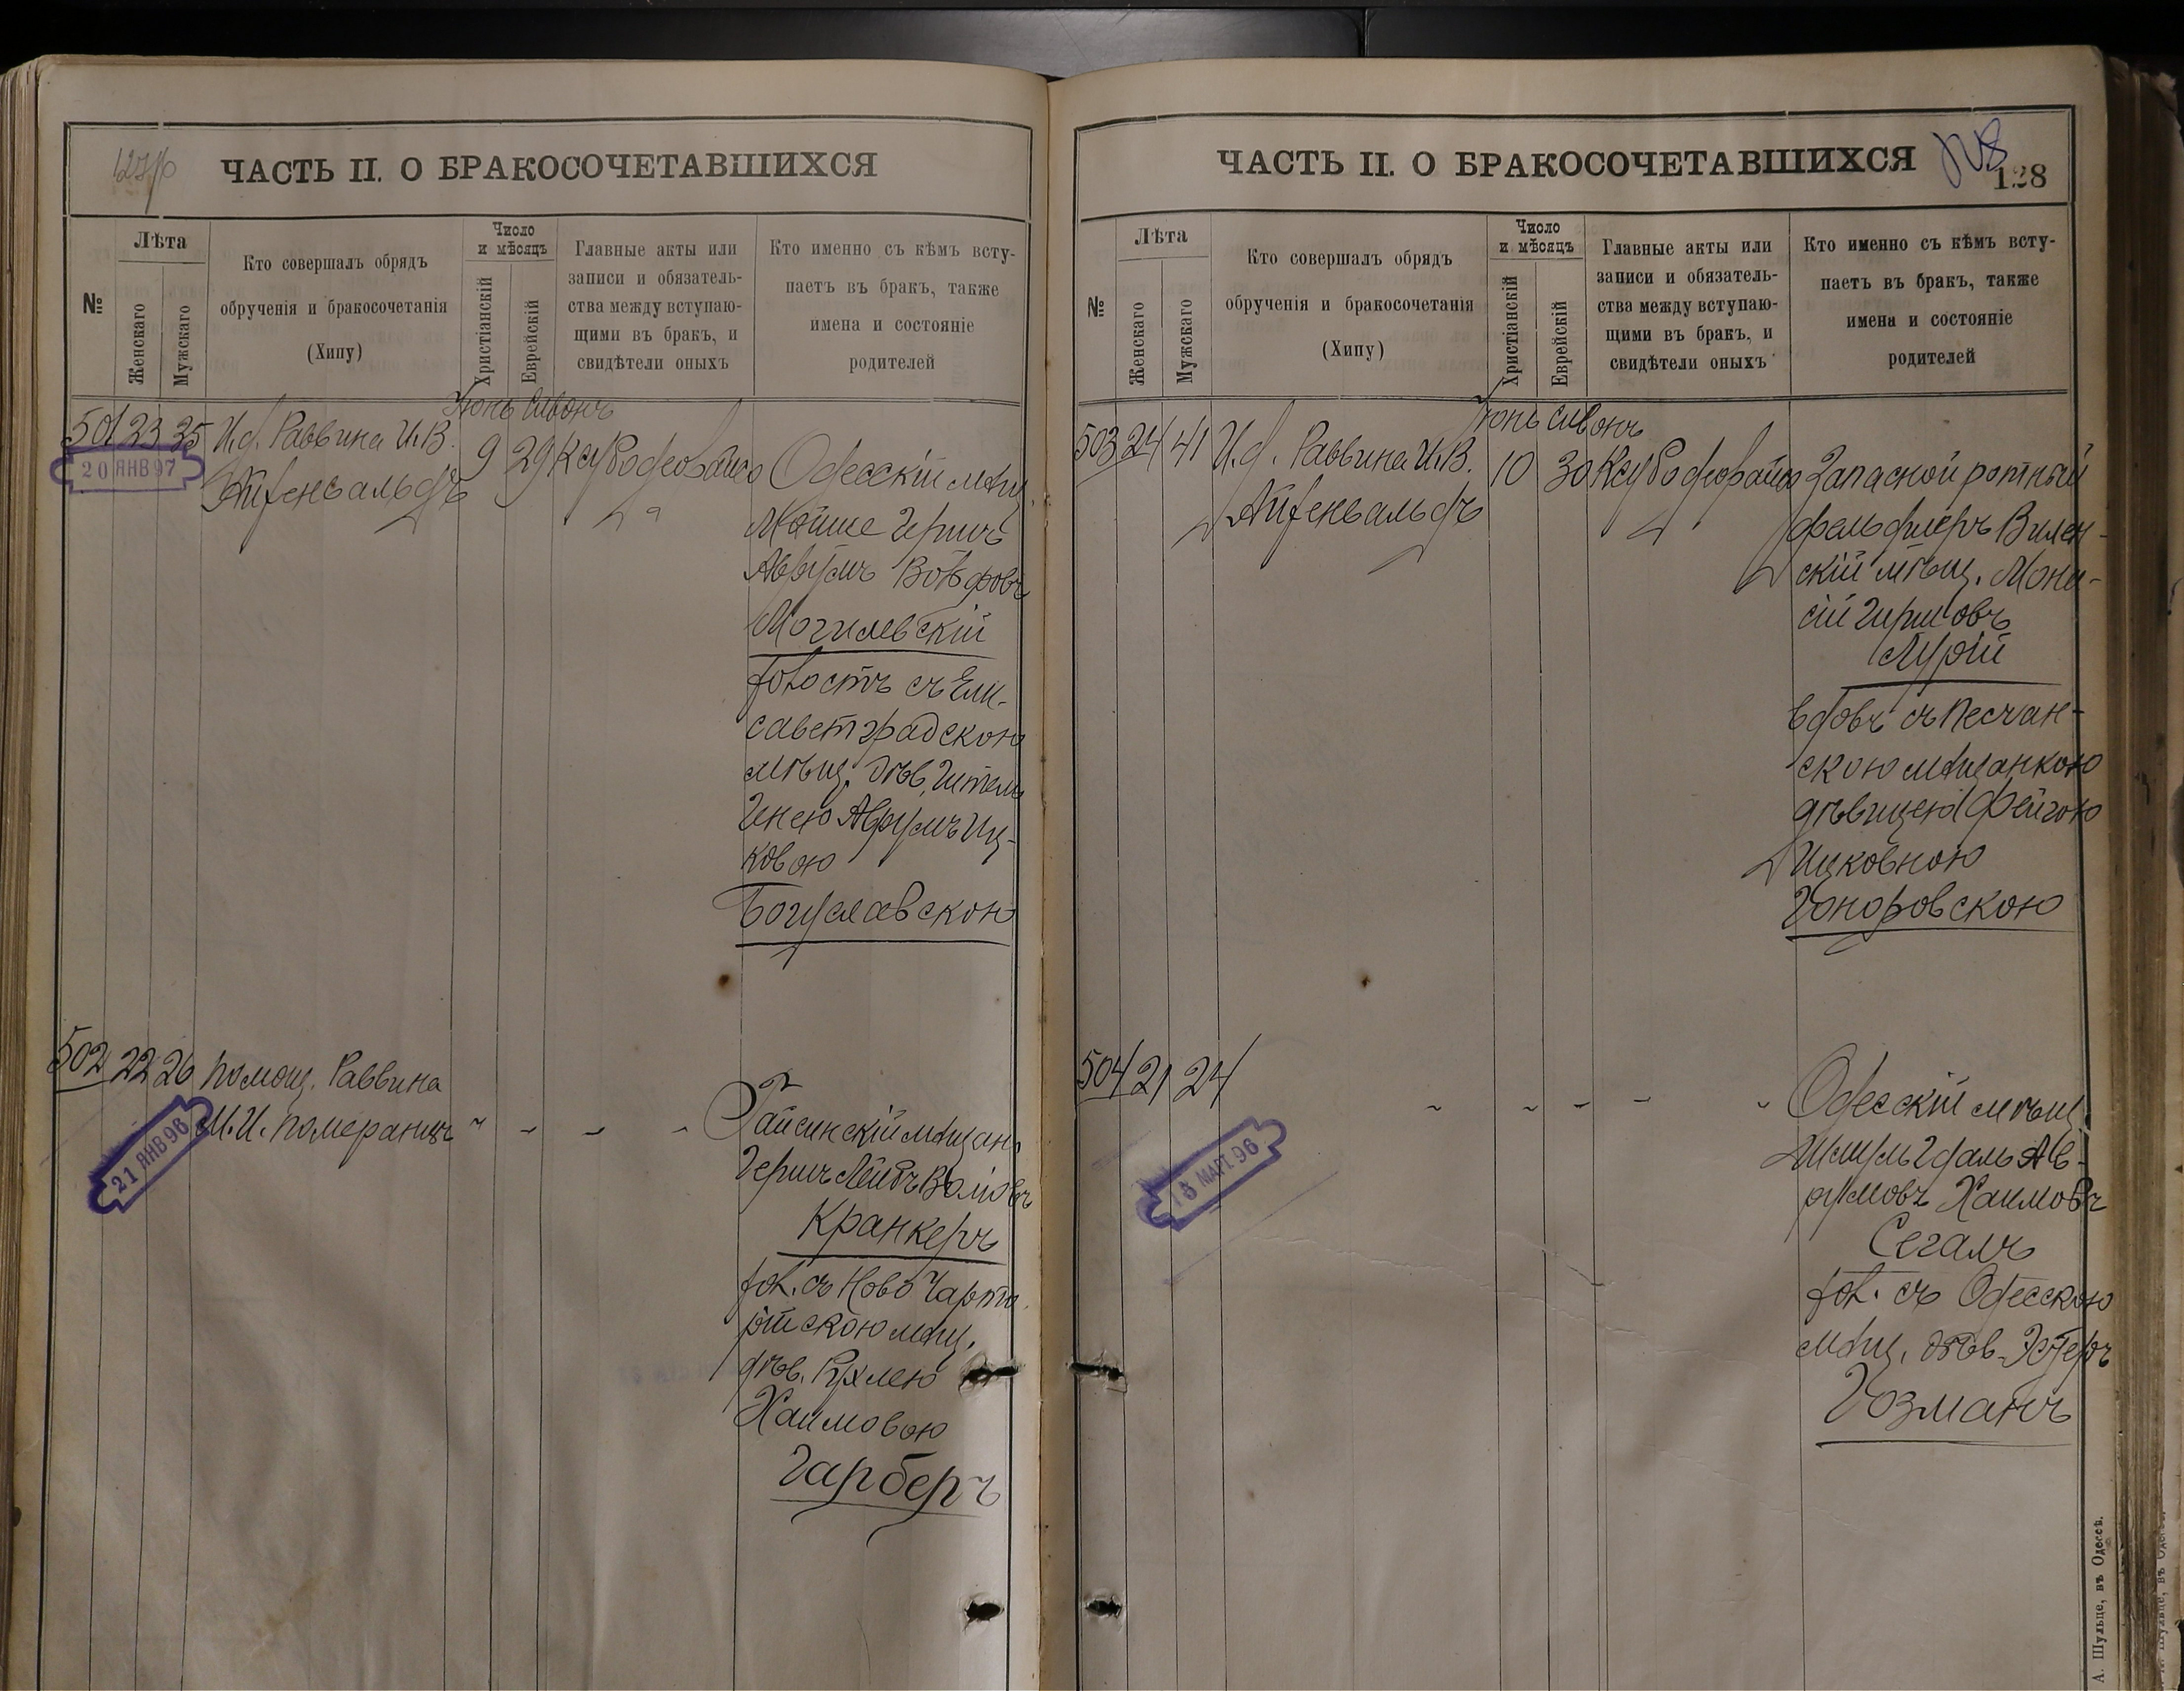 ЧАСТЬ II. О БРАКОСОЧЕТАВШИХСЯ
№
Лѣта
Женскаго
Мужскаго
Кто совершалъ обрядъ
обрученія и бракосочетанія
(Хипу)
Число
и мѣсяцъ
Христіанскій
Еврейскій
Главные акты или
записи и обязатель-
ства между вступаю-
щими въ бракъ, и
свидѣтели оныхъ
Кто именно съ кѣмъ всту-
паетъ въ бракъ, также
имена и состояніе
родителей
Іюнь Сивонъ
501 23 35 И.д. Раввина И.В. 9 29
20 ЯНВ 97
Айзенвальдъ
Одесскій мѣщ.
Мойше Гершъ
Аврумъ Вольфовъ
Могилевскій
холостъ съ Ели-
саветградскою
мѣщ. дѣв.
Генею Аврумъ Иц-
ковою
Богуславскою
502 22 26 Помощ. Раввина
М.И. Померанцъ " - - -
21 ЯНВ 96
Гайсинскій мѣщан.
Гершъ Лейбъ
Кранкеръ
хол. съ Ново Чарто
рійскою мѣщ.
дѣв. Рухлею
Хаимовою
Гарберъ
ЧАСТЬ II. О БРАКОСОЧЕТАВШИХСЯ
128
№
Лѣта
Женскаго
Мужскаго
Кто совершалъ обрядъ
обрученія и бракосочетанія
(Хипу)
Число
и мѣсяцъ
Христіанскій
Еврейскій
Главные акты или
записи и обязатель-
ства между вступаю-
щими въ бракъ, и
свидѣтели оныхъ
Кто именно съ кѣмъ всту-
паетъ въ бракъ, также
имена и состояніе
родителей
Іюнь Сивонъ
503 24 41 И.д. Раввина И.В. 10 30
Айзенвальдъ
Запасной ротный
фельдшеръ Вилен-
скій мѣщ. Мона-
сій Гершовъ
Лурій
вдовъ съ Песчан-
скою мѣщанкою
дѣвицею Фейгою
Ицковною
Гоноровскою
504 21 24 - - - - -
МАРТ 96
Одесскій мѣщ.
Шмуль Гдаль Ав-
румовъ Хаимовъ
Сегалъ
хол. съ Одесскою
мѣщ. дѣв. Эстеръ
Гозманъ
А. Шульце, въ Одессѣ.